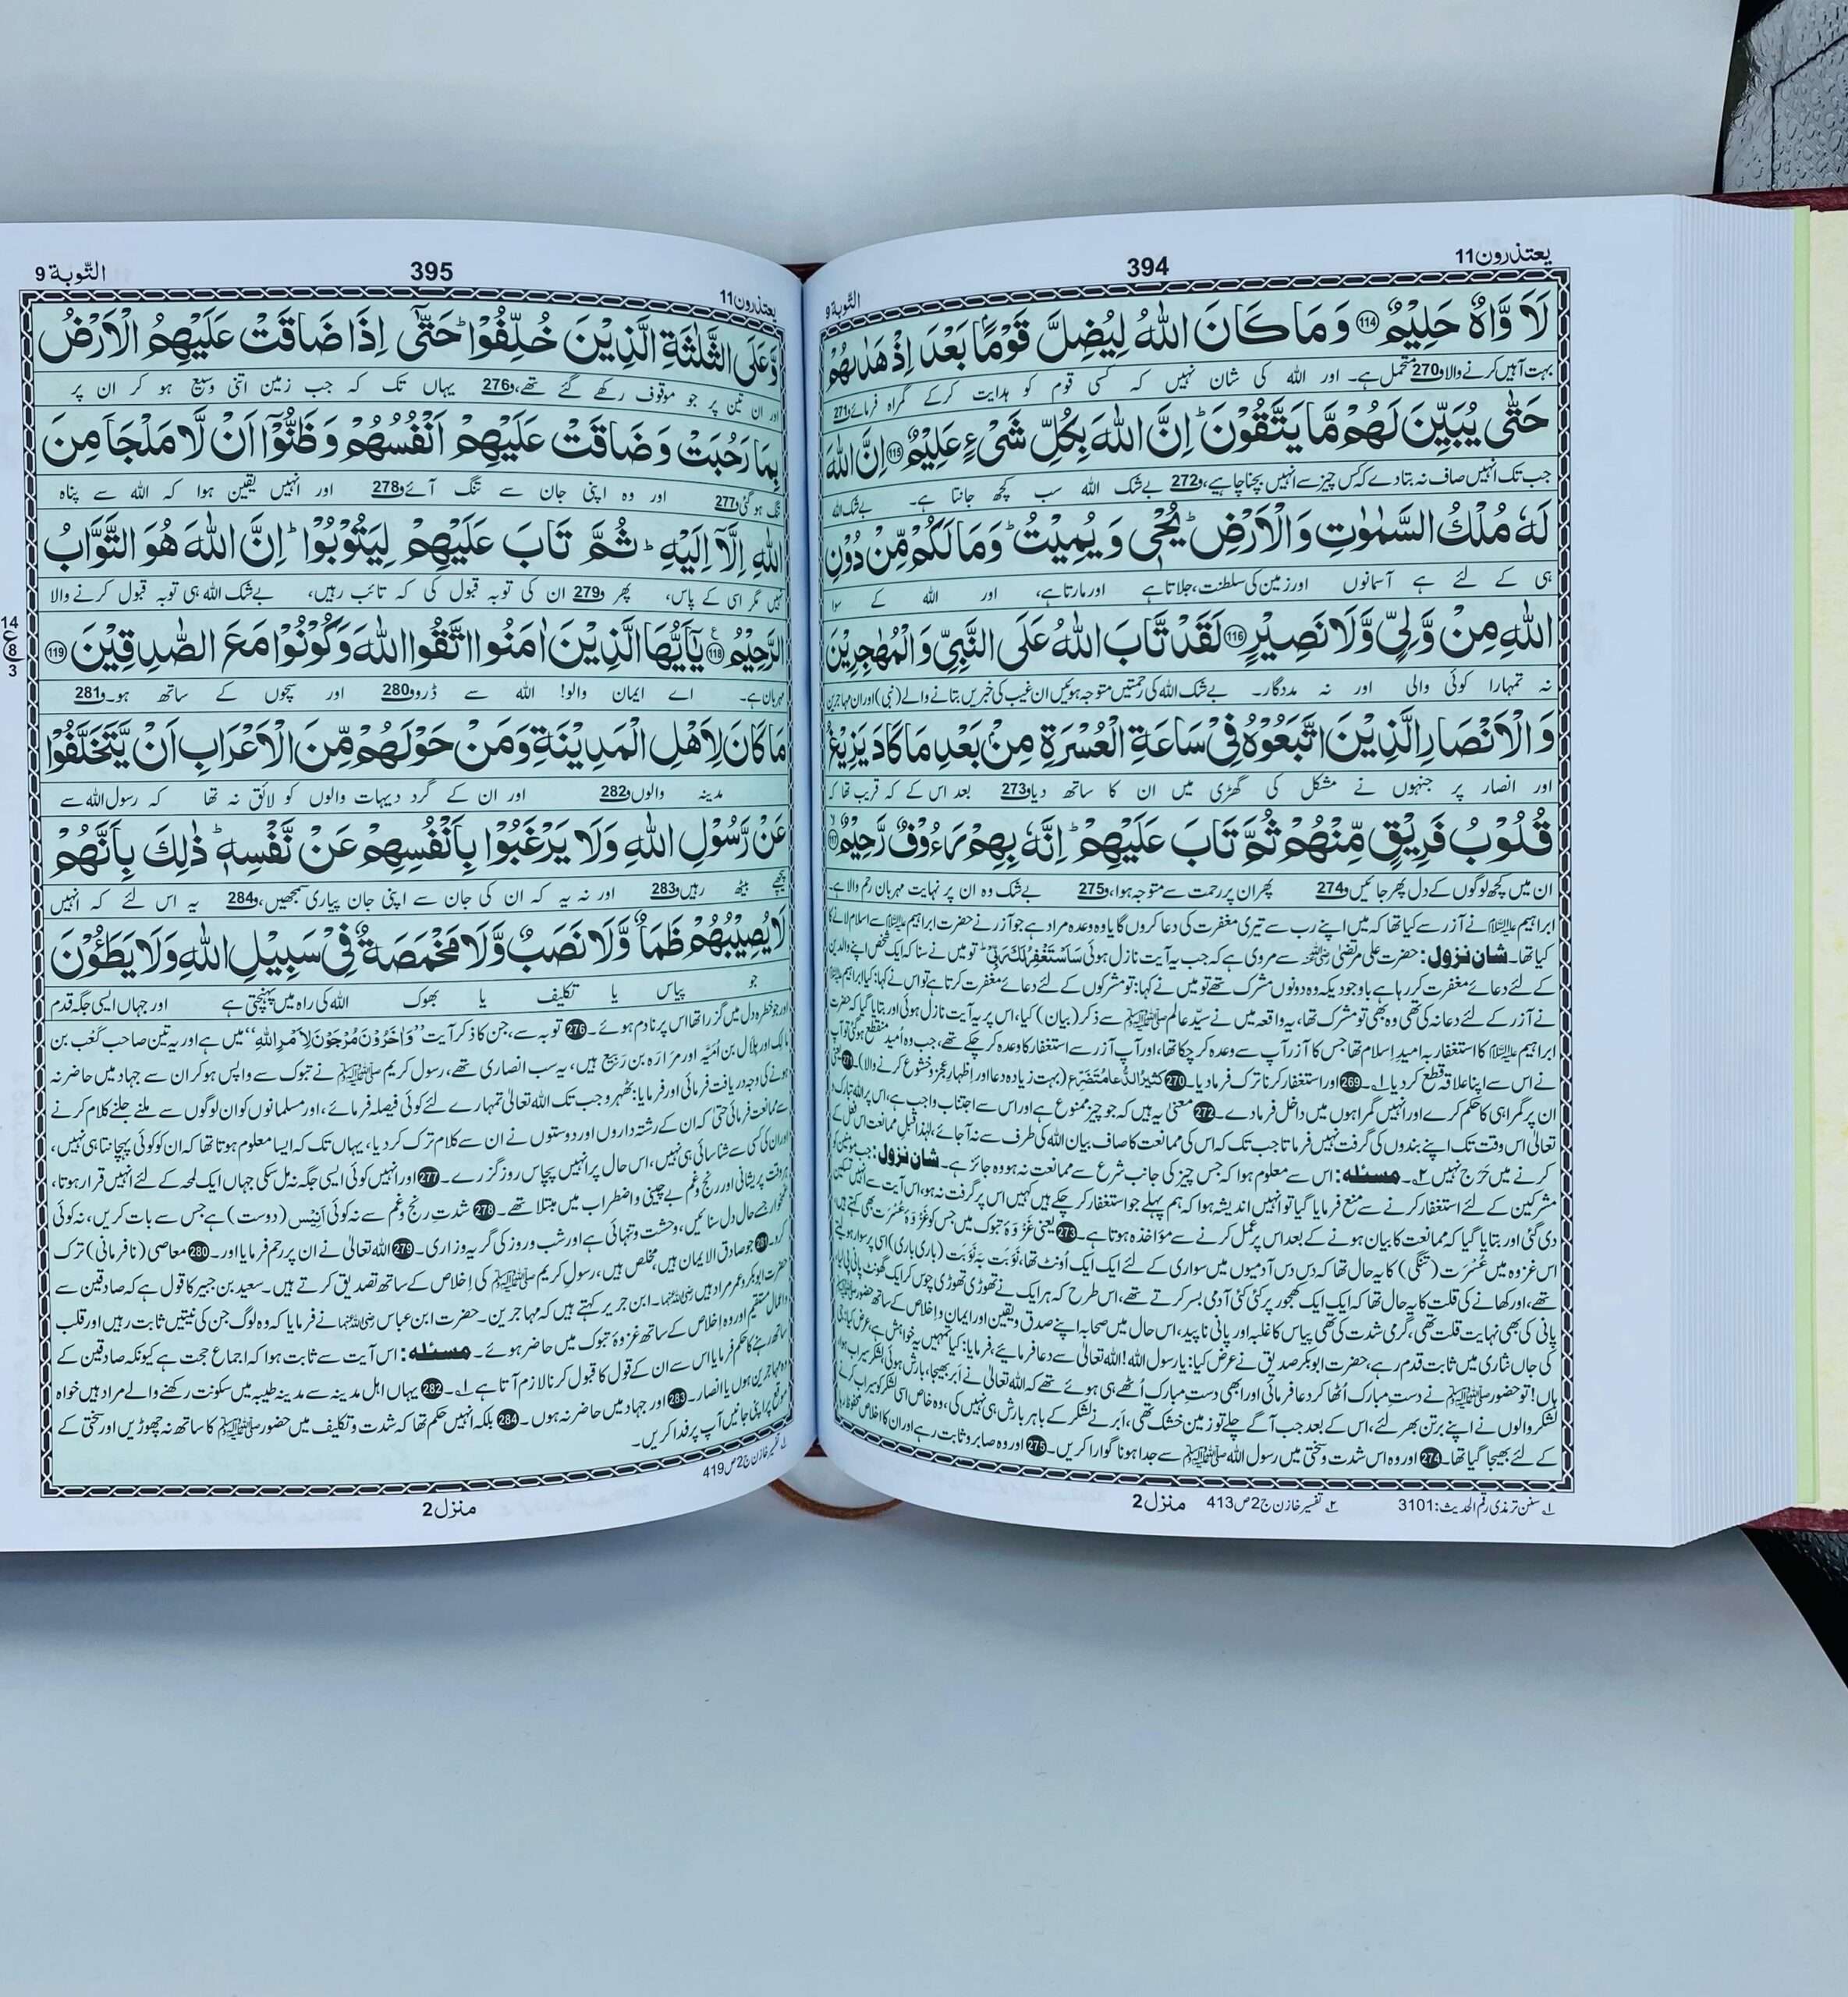 يعتذرون11
394
التّوبة9
لَاَوَّاهٌ حَلِيْمٌ ﴿114﴾ وَمَا كَانَ اللهُ لِيُضِلَّ قَوْمًۢا بَعْدَ اِذْ هَدٰىهُمْ
بہت آہیں کرنے والا و270 متحمل ہے۔ اور اللہ کی شان نہیں کہ کسی قوم کو ہدایت کرکے گمراہ فرمائے و271
حَتّٰى يُبَيِّنَ لَهُمْ مَّا يَتَّقُوْنَ ؕ اِنَّ اللهَ بِكُلِّ شَىْءٍ عَلِيْمٌ ﴿115﴾ اِنَّ اللهَ
جب تک انہیں صاف نہ بتادے کس چیز سے انہیں بچنا چاہیے، و272 بےشک اللہ سب کچھ جانتا ہے۔ بےشک اللہ
لَهٗ مُلْكُ السَّمٰوٰتِ وَالْاَرْضِ ؕ يُحْىٖ وَيُمِيْتُ ؕ وَمَا لَكُمْ مِّنْ دُوْنِ
ہی کے لئے ہے آسمانوں اور زمین کی سلطنت، جلاتا ہے اور مارتا ہے، اور اللہ کے سوا
اللهِ مِنْ وَّلِىٍّ وَّلَا نَصِيْرٍ ﴿116﴾ لَقَدْ تَّابَ اللهُ عَلَى النَّبِىِّ وَالْمُهٰجِرِيْنَ
نہ تمہارا کوئی والی اور نہ مددگار۔ بےشک اللہ کی رحمتیں متوجہ ہوئیں ان غیب کی خبریں بتانے والے (نبی) اور ان مہاجرین
وَالْاَنْصَارِ الَّذِيْنَ اتَّبَعُوْهُ فِىْ سَاعَةِ الْعُسْرَةِ مِنْۢ بَعْدِ مَا كَادَ يَزِيْغُ
اور انصار پر جنہوں نے مشکل کی گھڑی میں ان کا ساتھ دیا و273 بعد اس کے کہ قریب تھا کہ
قُلُوْبُ فَرِيْقٍ مِّنْهُمْ ثُمَّ تَابَ عَلَيْهِمْ ؕ اِنَّهٗ بِهِمْ رَءُوْفٌ رَّحِيْمٌ ﴿117﴾
ان میں کچھ لوگوں کے دل پھر جائیں و274 پھر ان پر رحمت سے متوجہ ہوا، و275 بےشک وہ ان پر نہایت مہربان رحم والا ہے۔
ابراہیم علیہ السلام نے آزر سے کیا تھا کہ میں اپنے رب سے تیری مغفرت کی دعا کروں گا یا وہ وعدہ مراد ہے جو آزر نے حضرت ابراہیم علیہ السلام سے اسلام لانے کا
کیا تھا۔ شانِ نزول: حضرت علی مرتضیٰ رضی اللہ عنہ سے مروی ہے کہ جب یہ آیت نازل ہوئی سَاَسْتَغْفِرُ لَكَ رَبِّیْ تو میں نے سنا کہ ایک شخص اپنے والدین
کے لئے دعائے مغفرت کررہا ہے باوجودیکہ وہ دونوں مشرک تھے تو میں نے کہا: تو مشرکوں کے لئے دعائے مغفرت کرتا ہے تو اس نے کہا: کیا ابراہیم علیہ السلام
نے آزر کے لئے دعا نہ کی تھی وہ بھی تو مشرک تھا، یہ واقعہ میں نے سیّدِ عالم ﷺ سے ذکر (بیان) کیا، اس پر یہ آیت نازل ہوئی اور بتایا گیا کہ حضرت
ابراہیم علیہ السلام کا استغفار بہ امیدِ اسلام تھا جس کا آزر آپ سے وعدہ کرچکا تھا، اور آپ آزر سے استغفار کا وعدہ کرچکے تھے، جب وہ اُمید منقطع ہوگئی تو آپ
نے اس سے اپنا علاقہ قطع کردیا ۱۔ 269 اور استغفار کرنا ترک فرمادیا۔ 270 كَثِيْرُ الدُّعَا مُتَضَرِّع (بہت زیادہ دعا اور اظہارِ عجز و خشوع کرنے والا)۔ 271 یعنی
ان پر گمراہی کا حکم کرے اور انہیں گمراہوں میں داخل فرمادے۔ 272 معنی یہ ہیں کہ جو چیز ممنوع ہے اور اس سے اجتناب واجب ہے، اس پر اللہ تبارک و
تعالیٰ اس وقت تک اپنے بندوں کی گرفت نہیں فرماتا جب تک کہ اس کی ممانعت کا صاف بیان اللہ کی طرف سے نہ آجائے، لہٰذا قبلِ ممانعت اس فعل کے
کرنے میں حَرَج نہیں ۲۔ مسئلہ: اس سے معلوم ہوا کہ جس چیز کی جانب شرع سے ممانعت نہ ہو وہ جائز ہے۔ شانِ نزول: جب مومنین کو
مشرکین کے لئے استغفار کرنے سے منع فرمایا گیا تو انہیں اندیشہ ہوا کہ ہم پہلے جو استغفار کرچکے ہیں کہیں اس پر گرفت نہ ہو، اس آیت سے انہیں تسکین
دی گئی اور بتایا گیا کہ ممانعت کا بیان ہونے کے بعد اس پر عمل کرنے سے مؤاخذہ ہوتا ہے۔ 273 یعنی غَزْوَۂ تبوک میں جس کو غَزْوَۂ عُسْرَت بھی کہتے ہیں،
اس غزوہ میں عُسْرَت (تنگی) کا یہ حال تھا کہ دس دس آدمیوں میں سواری کے لئے ایک ایک اُونٹ تھا، نَوْبَت بہ نَوْبَت (باری باری) اسی پر سوار ہولیتے
تھے، اور کھانے کی قلت کا یہ حال تھا کہ ایک ایک کھجور پر کئی کئی آدمی بسر کرتے تھے، اس طرح کہ ہر ایک نے تھوڑی تھوڑی چوس کر ایک گھونٹ پانی پی لیا،
پانی کی بھی نہایت قلت تھی، گرمی شدت کی تھی پیاس کا غلبہ اور پانی ناپید، اس حال میں صحابہ اپنے صدق و یقین اور ایمان و اِخلاص کے ساتھ حضور ﷺ
کی جاں نثاری میں ثابت قدم رہے، حضرت ابوبکر صدیق نے عرض کیا: یارسول اللہ! اللہ تعالیٰ سے دعا فرمائیے، فرمایا: کیا تمہیں یہ خواہش ہے، عرض کیا: جی
ہاں! تو حضور ﷺ نے دستِ مبارک اُٹھا کر دعا فرمائی اور ابھی دستِ مبارک اُٹھے ہی ہوئے تھے کہ اللہ تعالیٰ نے اَبر بھیجا، بارش ہوئی لشکر سیراب ہوا،
لشکر والوں نے اپنے برتن بھر لئے، اس کے بعد جب آگے چلے تو زمین خشک تھی، اَبر نے لشکر کے باہر بارش ہی نہیں کی، وہ خاص اسی لشکر کو سیراب کرنے
کے لئے بھیجا گیا تھا۔ 274 اور وہ اس شدت و سختی میں رسول اللہ ﷺ سے جدا ہونا گوارا کریں۔ 275 اور وہ صابر و ثابت رہے اور ان کا اخلاص محفوظ رہا
۱؎ سنن ترمذی رقم الحدیث: 3101 ۲؎ تفسیر خازن ج2 ص413 منزل2
يعتذرون11
395
التّوبة9
وَّعَلَى الثَّلٰثَةِ الَّذِيْنَ خُلِّفُوْا ؕ حَتّٰٓى اِذَا ضَاقَتْ عَلَيْهِمُ الْاَرْضُ
اور ان تین پر جو موقوف رکھے گئے تھے، و276 یہاں تک کہ جب زمین اتنی وسیع ہو کر ان پر
بِمَا رَحُبَتْ وَضَاقَتْ عَلَيْهِمْ اَنْفُسُهُمْ وَظَنُّوْٓا اَنْ لَّا مَلْجَاَ مِنَ
تنگ ہوگئی و277 اور وہ اپنی جان سے تنگ آئے و278 اور انہیں یقین ہوا کہ اللہ سے پناہ
اللهِ اِلَّآ اِلَيْهِ ؕ ثُمَّ تَابَ عَلَيْهِمْ لِيَتُوْبُوْا ؕ اِنَّ اللهَ هُوَ التَّوَّابُ
نہیں مگر اسی کے پاس، پھر و279 ان کی توبہ قبول کی کہ تائب رہیں، بےشک اللہ ہی توبہ قبول کرنے والا
الرَّحِيْمُ ﴿118﴾ يٰٓاَيُّهَا الَّذِيْنَ اٰمَنُوا اتَّقُوا اللهَ وَكُوْنُوْا مَعَ الصّٰدِقِيْنَ ﴿119﴾
14
ع8
3
مہربان ہے۔ اے ایمان والو! اللہ سے ڈرو و280 اور سچوں کے ساتھ ہو۔ و281
مَا كَانَ لِاَهْلِ الْمَدِيْنَةِ وَمَنْ حَوْلَهُمْ مِّنَ الْاَعْرَابِ اَنْ يَّتَخَلَّفُوْا
مدینہ والوں و282 اور ان کے گرد دیہات والوں کو لائق نہ تھا کہ رسول اللہ سے
عَنْ رَّسُوْلِ اللهِ وَلَا يَرْغَبُوْا بِاَنْفُسِهِمْ عَنْ نَّفْسِهٖ ؕ ذٰلِكَ بِاَنَّهُمْ
پیچھے بیٹھ رہیں و283 اور نہ یہ کہ ان کی جان سے اپنی جان پیاری سمجھیں، و284 یہ اس لئے کہ انہیں
لَا يُصِيْبُهُمْ ظَمَاٌ وَّلَا نَصَبٌ وَّلَا مَخْمَصَةٌ فِىْ سَبِيْلِ اللهِ وَلَا يَطَـُٔوْنَ
جو پیاس یا تکلیف یا بھوک اللہ کی راہ میں پہنچتی ہے اور جہاں ایسی جگہ قدم
اور جو خطرہ دل میں گزرا تھا اس پر نادم ہوئے۔ 276 توبہ سے، جن کا ذکر آیت ”وَاٰخَرُوْنَ مُرْجَوْنَ لِاَمْرِ اللهِ“ میں ہے اور یہ تین صاحب کَعْب بن
مالک اور ہِلال بن اُمَیَّہ اور مرارہ بن رَبیع ہیں، یہ سب انصاری تھے، رسول کریم ﷺ نے تبوک سے واپس ہوکر ان سے جہاد میں حاضر نہ
ہونے کی وجہ دریافت فرمائی اور فرمایا: ٹھہرو جب تک اللہ تعالیٰ تمہارے لئے کوئی فیصلہ فرمائے، اور مسلمانوں کو ان لوگوں سے ملنے جلنے کلام کرنے
سے ممانعت فرمائی حتیٰ کہ ان کے رشتہ داروں اور دوستوں نے ان سے کلام ترک کردیا، یہاں تک کہ ایسا معلوم ہوتا تھا کہ ان کو کوئی پہچانتا ہی نہیں،
اور ان کی کسی سے شناسائی ہی نہیں، اس حال پر انہیں پچاس روز گزرے۔ 277 اور انہیں کوئی ایسی جگہ نہ مل سکی جہاں ایک لمحہ کے لئے انہیں قرار ہوتا،
ہر وقت پریشانی اور رنج و غم بےچینی و اضطراب میں مبتلا تھے۔ 278 شدتِ رنج و غم سے نہ کوئی اَنِیْس (دوست) ہے جس سے بات کریں، نہ کوئی
غمخوار جسے حالِ دل سنائیں، وحشت و تنہائی ہے اور شب و روز کی گریہ و زاری۔ 279 اللہ تعالیٰ نے ان پر رحم فرمایا اور۔ 280 معاصی (نافرمانی) ترک
کرو۔ 281 جو صادق الایمان ہیں، مخلص ہیں، رسولِ کریم ﷺ کی اِخلاص کے ساتھ تصدیق کرتے ہیں۔ سعید بن جبیر کا قول ہے کہ صادقین سے
حضرت ابوبکر و عمر مراد ہیں رضی اللہ عنہما۔ ابن جریر کہتے ہیں کہ مہاجرین۔ حضرت ابن عباس رضی اللہ عنہما نے فرمایا کہ وہ لوگ جن کی نیتیں ثابت رہیں اور قلب
و اعمال مستقیم اور وہ اِخلاص کے ساتھ غزوۂ تبوک میں حاضر ہوئے۔ مسئلہ: اس آیت سے ثابت ہوا کہ اجماع حجت ہے کیونکہ صادقین کے
ساتھ رہنے کا حکم فرمایا اس سے ان کے قول کا قبول کرنا لازم آتا ہے ۱۔ 282 یہاں اہل مدینہ سے مدینہ طیبہ میں سکونت رکھنے والے مراد ہیں خواہ
وہ مہاجرین ہوں یا انصار۔ 283 اور جہاد میں حاضر نہ ہوں۔ 284 بلکہ انہیں حکم تھا کہ شدت و تکلیف میں حضور ﷺ کا ساتھ نہ چھوڑیں اور سختی کے
موقع پر اپنی جانیں آپ پر فدا کریں۔
۱؎ تفسیر خازن ج2 ص419
منزل2